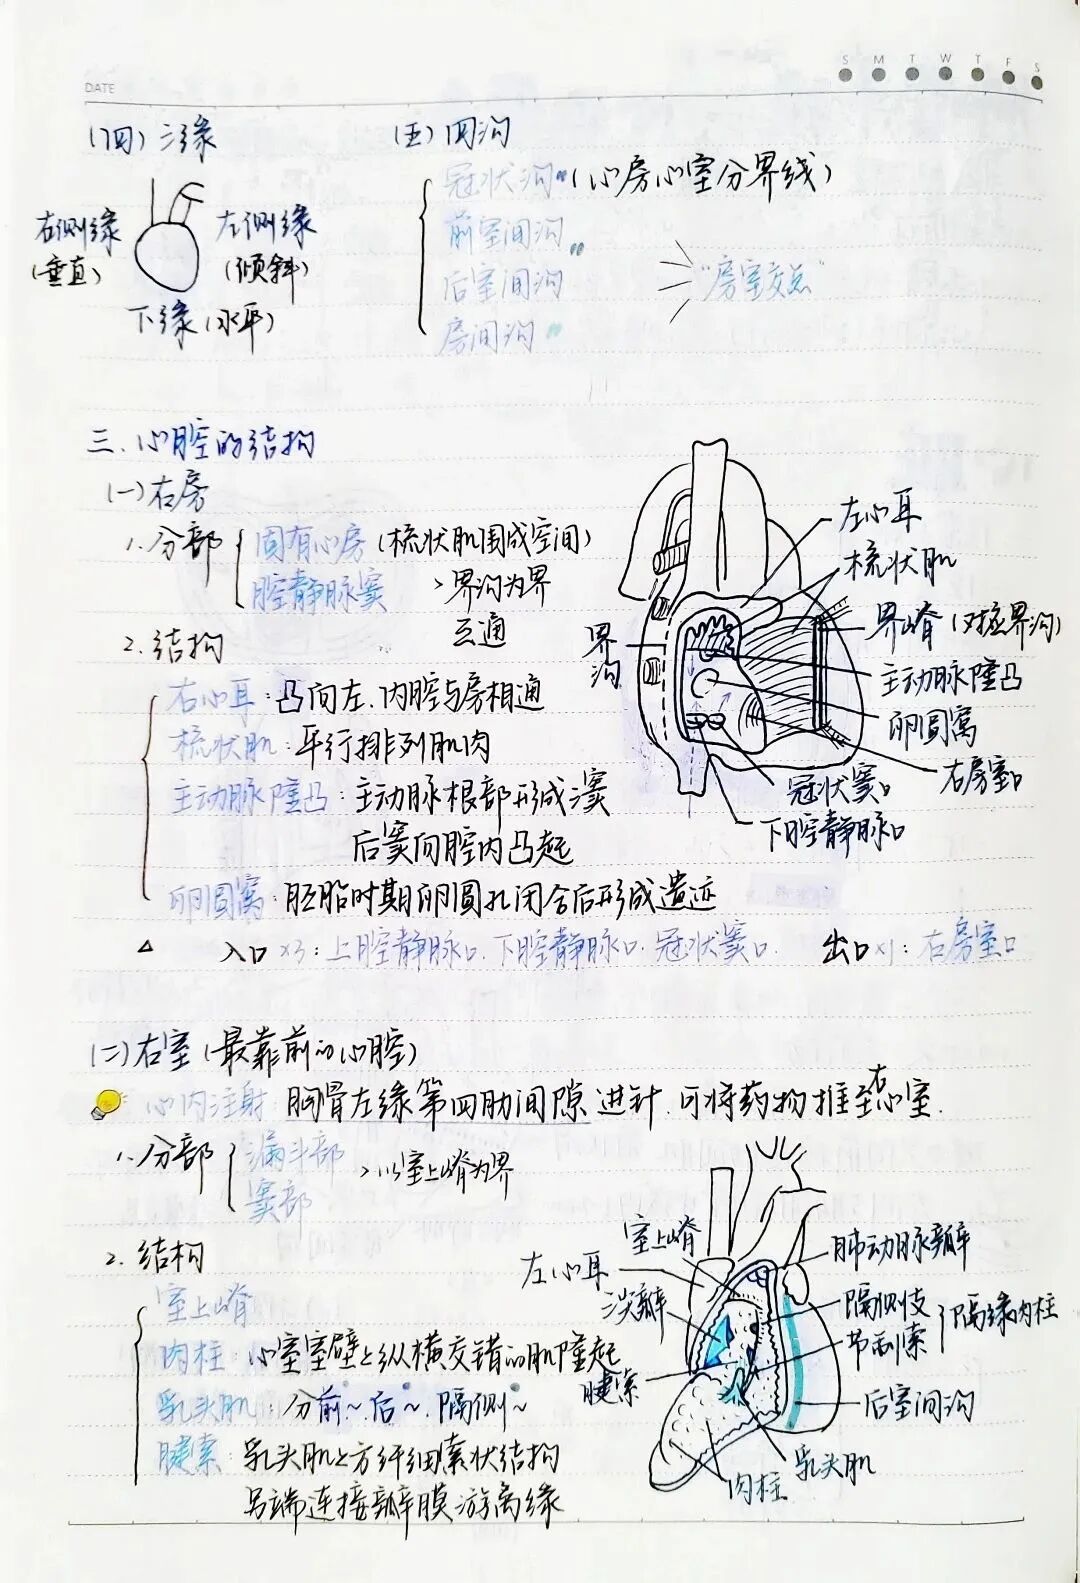 DATE
S M T W T F S
(四) 三缘
右侧缘
(垂直)
左侧缘
(倾斜)
下缘(水平)
(五) 四沟
冠状沟 (心房心室分界线)
前室间沟
后室间沟
房间沟
"房室交点"
三.心腔的结构
(一)右房
1.分部
固有心房 (梳状肌围成空间)
腔静脉窦
>界沟为界
互通
2.结构
右心耳:凸向左.内腔与房相通
梳状肌:平行排列肌肉
主动脉隆凸:主动脉根部形成3窦
后窦向腔内凸起
卵圆窝:胚胎时期卵圆孔闭合后形成遗迹
△ 入口×3:上腔静脉口.下腔静脉口.冠状窦口. 出口×1:右房室口
左心耳
梳状肌
界沟
界嵴(对应界沟)
主动脉隆凸
卵圆窝
右房室口
冠状窦口
下腔静脉口
(二)右室(最靠前的心腔)
心内注射:胸骨左缘第四肋间隙进针.可将药物推至右心室.
1.分部
漏斗部
窦部
>以室上嵴为界
2.结构
室上嵴
肉柱:心室室壁上纵横交错的肌隆起
乳头肌:分前~后~.隔侧~
腱索:乳头肌上方纤细索状结构
另端连接瓣膜游离缘
室上嵴
左心耳
尖瓣
腱索
肺动脉瓣
隔侧支
节制索
隔缘肉柱
后室间沟
乳头肌
肉柱